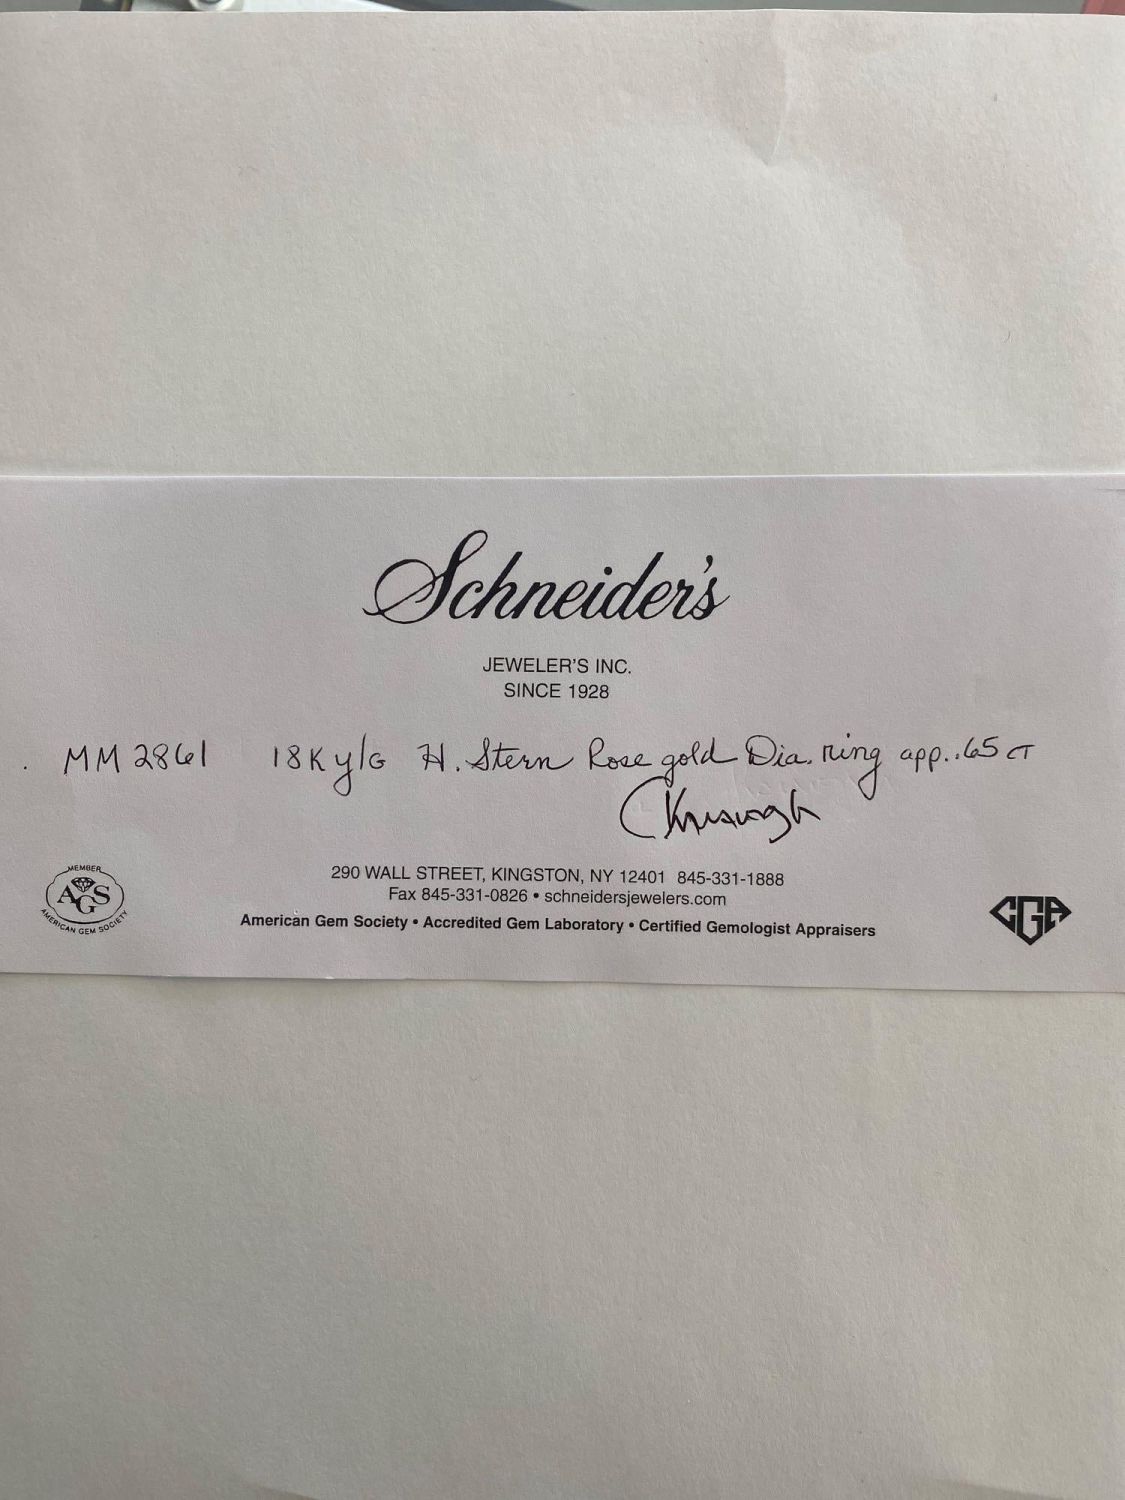 Schneider's
JEWELER'S INC.
SINCE 1928
MM2861 18K y/G H. Stern Rose gold Dia. ring app. .65 CT
290 WALL STREET, KINGSTON, NY 12401 845-331-1888
Fax 845-331-0826 • schneidersjewelers.com
American Gem Society • Accredited Gem Laboratory • Certified Gemologist Appraisers
MEMBER
AGS
AMERICAN GEM SOCIETY
CGA